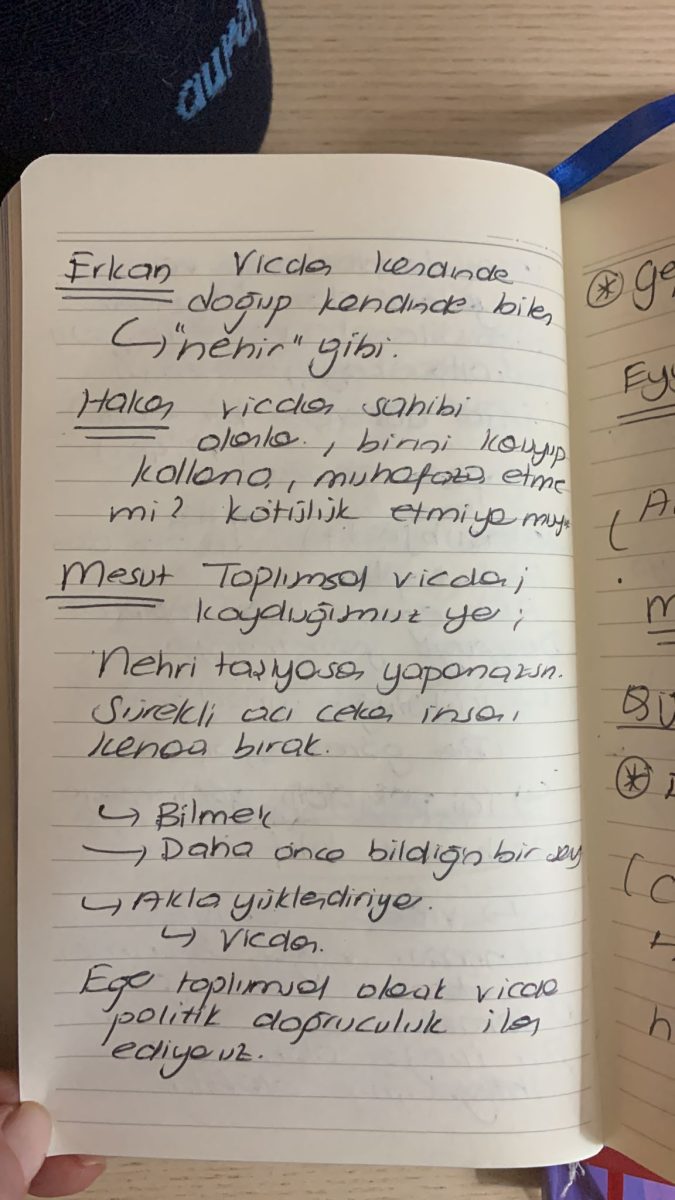 Erkan Vicdan kendinde
doğup kendinde biten
↳ "nehir" gibi.
Hakan vicdan sahibi
olanla, birini kayıp
kollama, muhafaza etme
mi? kötülük etmiye muyu
Mesut Toplumsal vicdan;
koyduğumuz yer;
Nehri taşıyosan yapamazsın.
Sürekli acı çeken insanı
kenara bırak.
↳ Bilmek
→ Daha önce bildiğin bir şey
↳ Akla yüklendiriyor.
↳ Vicdan.
Ege toplumsal olarak vicdan
politik doğruculuk ilan
ediyoruz.
* ge
Ey
(
M
*
(
h